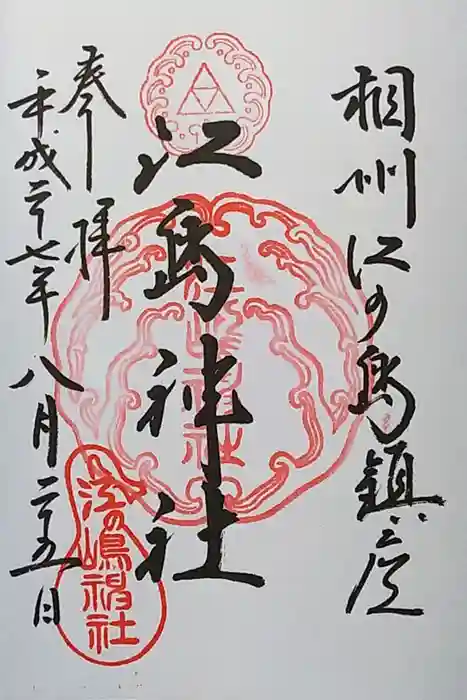 相州江の島鎮座
江島神社
奉拝
平成二十七年八月二十五日
江の嶋神社